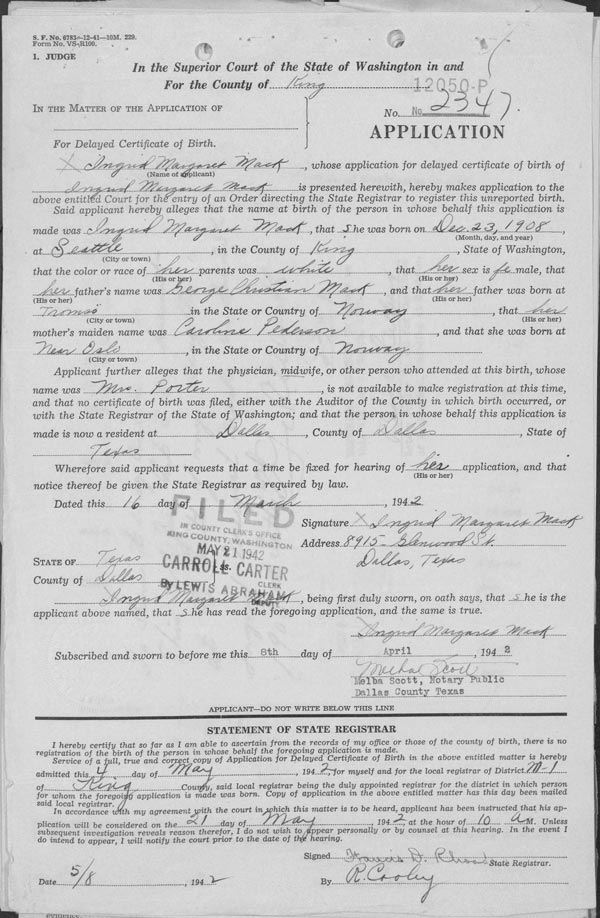 S. F. No. 6783—12-41—10M. 229.
Form No. VS-R100.
1. JUDGE
In the Superior Court of the State of Washington in and
For the County of King
12050-P
IN THE MATTER OF THE APPLICATION OF
No. No. 2347.
APPLICATION
For Delayed Certificate of Birth.
X Ingrid Margaret Mack, whose application for delayed certificate of birth of
(Name of applicant)
Ingrid Margaret Mack is presented herewith, hereby makes application to the
above entitled Court for the entry of an Order directing the State Registrar to register this unreported birth.
Said applicant hereby alleges that the name at birth of the person in whose behalf this application is
made was Ingrid Margaret Mack, that She was born on Dec. 23, 1908,
(Month, day, and year)
at Seattle, in the County of King, State of Washington,
(City or town)
that the color or race of her parents was white, that her sex is fe male, that
(His or her) (His or her)
her father's name was George Christian Mack, and that her father was born at
(His or her) (His or her)
Tromsö in the State or Country of Norway, that her
(City or town) (His or her)
mother's maiden name was Caroline Pederson, and that she was born at
Near Oslo, in the State or Country of Norway
(City or town)
Applicant further alleges that the physician, midwife, or other person who attended at this birth, whose
name was Mrs. Porter, is not available to make registration at this time,
and that no certificate of birth was filed, either with the Auditor of the County in which birth occurred, or
with the State Registrar of the State of Washington; and that the person in whose behalf this application is
made is now a resident at Dallas, County of Dallas, State of
Texas
Wherefore said applicant requests that a time be fixed for hearing of her application, and that
(His or her)
notice thereof be given the State Registrar as required by law.
Dated this 16 day of March, 1942
FILED
IN COUNTY CLERK'S OFFICE
KING COUNTY, WASHINGTON
MAY 21 1942
CARROLL CARTER
CLERK
By LEWIS ABRAHAM
DEPUTY
Signature X Ingrid Margaret Mack
Address 8915 Glenwood St.
Dallas, Texas
STATE OF Texas
ss.
County of Dallas
Ingrid Margaret Mack, being first duly sworn, on oath says, that S he is the
applicant above named, that S he has read the foregoing application, and the same is true.
Ingrid Margaret Mack
Subscribed and sworn to before me this 8th day of April, 1942
Melba Scott
Melba Scott, Notary Public
Dallas County Texas
APPLICANT—DO NOT WRITE BELOW THIS LINE
STATEMENT OF STATE REGISTRAR
I hereby certify that so far as I am able to ascertain from the records of my office or those of the county of birth, there is no
registration of the birth of the person in whose behalf the foregoing application is made.
Service of a full, true and correct copy of Application for Delayed Certificate of Birth in the above entitled matter is hereby
admitted this 4 day of May, 1942 for myself and for the local registrar of District M-1
of King County, said local registrar being the duly appointed registrar for the district in which person
for whom the foregoing application is made was born. Copy of application in the above entitled matter has this day been mailed
said local registrar.
In accordance with my agreement with the court in which this matter is to be heard, applicant has been instructed that his ap-
plication will be considered on the 21 day of May 1942 at the hour of 10 A M. Unless
subsequent investigation reveals reason therefor, I do not wish to appear personally or by counsel at this hearing. In the event I
do intend to appear, I will notify the court prior to the date of the hearing.
Signed Francis D. State Registrar.
Date 5/8, 1942
By R. Cooley